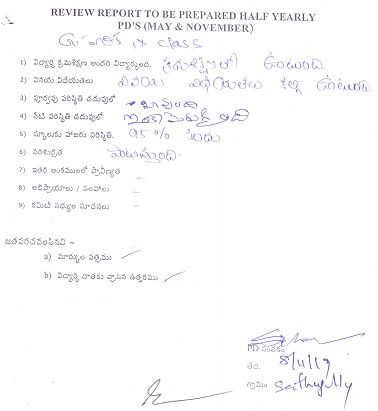 REVIEW REPORT TO BE PREPARED HALF YEARLY
PD'S (MAY & NOVEMBER)
IX class
1) విద్యార్థి క్రమశిక్షణ అందరి విద్యార్థులది. క్రమశిక్షణలో ఉంటుంది
2) వినయ విధేయతలు వినయ విధేయతలు కల్గి ఉంటుంది
3) పూర్వపు పరిస్థితి చదువులో బావుంది
4) నేటి పరిస్థితి చదువులో
5) స్కూలుకు హాజరు పరిస్థితి. 95% కలదు
6) పరిశుభ్రత పాటిస్తుంది.
7) ఇతర అంశములలో ప్రావీణ్యత
8) అభిప్రాయాలు / సలహాలు
9) కమిటీ సభ్యుల సూచనలు
జతపరచవలసినవి –
a) మార్కుల పత్రము
b) విద్యార్థి దాతకు వ్రాసిన ఉత్తరము
PD సంతకం
తేది. 8/11/19
గ్రామం Sathupally